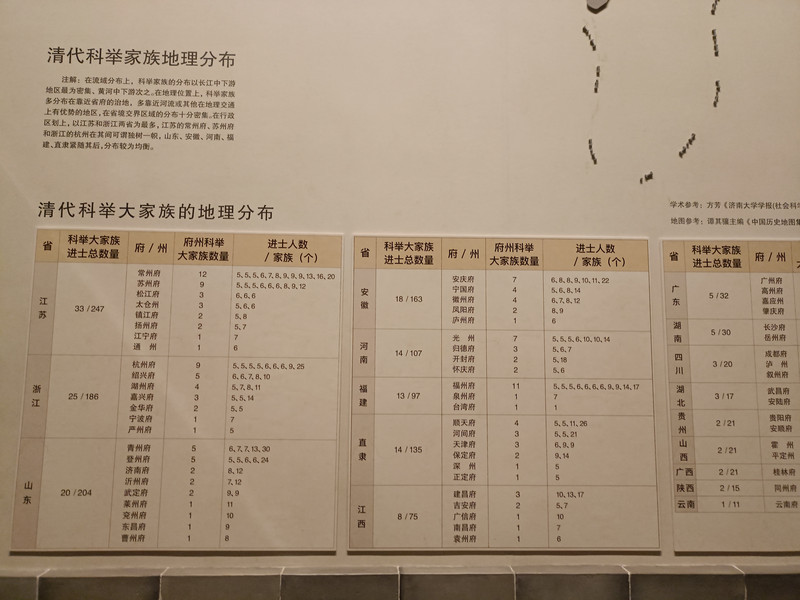 清代科举家族地理分布
注解：在流域分布上，科举家族的分布以长江中下游
地区最为密集、黄河中下游次之。在地理位置上，科举家族
多分布在靠近省府的治地，多靠近河流或其他在地理交通
上有优势的地区，在省境交界区域的分布十分密集。在行政
区划上，以江苏和浙江两省为最多，江苏的常州府、苏州府
和浙江的杭州在其间可谓独树一帜，山东、安徽、河南、福
建、直隶紧随其后，分布较为均衡。
学术参考：方芳《济南大学学报(社会科学
地图参考：谭其骧主编《中国历史地图集
清代科举大家族的地理分布
省 科举大家族进士总数量 府 / 州 府州科举大家族数量 进士人数 / 家族（个）
江苏 33 / 247
常州府 12 5, 5, 5, 6, 7, 8, 9, 9, 9, 13, 16, 20
苏州府 9 5, 5, 5, 6, 6, 6, 8, 9, 12
松江府 3 6, 6, 6
太仓州 3 5, 6, 6
镇江府 2 5, 8
扬州府 2 5, 7
江宁府 1 7
通 州 1 6
浙江 25 / 186
杭州府 9 5, 5, 5, 5, 6, 6, 6, 9, 25
绍兴府 5 6, 6, 7, 8, 10
湖州府 4 5, 7, 8, 11
嘉兴府 3 5, 5, 14
金华府 2 5, 5
宁波府 1 7
严州府 1 5
山东 20 / 204
青州府 5 6, 7, 7, 13, 30
登州府 5 5, 5, 6, 6, 24
济南府 2 8, 12
沂州府 2 7, 12
武定府 2 9, 9
莱州府 1 11
兖州府 1 10
东昌府 1 9
曹州府 1 8
省 科举大家族进士总数量 府 / 州 府州科举大家族数量 进士人数 / 家族（个）
安徽 18 / 163
安庆府 7 6, 8, 8, 9, 10, 11, 22
宁国府 4 5, 6, 8, 14
徽州府 4 6, 7, 8, 12
凤阳府 2 8, 9
庐州府 1 6
河南 14 / 107
光 州 7 5, 5, 5, 6, 10, 10, 14
归德府 3 5, 6, 7
开封府 2 5, 18
怀庆府 2 5, 6
福建 13 / 97
福州府 11 5, 5, 5, 6, 6, 6, 6, 9, 9, 14, 17
泉州府 1 7
台湾府 1 1
直隶 14 / 135
顺天府 4 5, 5, 11, 26
河间府 3 5, 5, 21
天津府 3 6, 9, 9
保定府 2 9, 14
深 州 1 5
正定府 1 5
江西 8 / 75
建昌府 3 10, 13, 17
吉安府 2 5, 7
广信府 1 10
南昌府 1 7
袁州府 1 6
省 科举大家族进士总数量 府 / 州
广东 5 / 32
广州府
高州府
嘉应州
肇庆府
湖南 5 / 30
长沙府
岳州府
四川 3 / 20
成都府
泸 州
叙州府
湖北 3 / 17
武昌府
安陆府
贵州 2 / 21
贵阳府
安顺府
山西 2 / 21
霍 州
平定州
广西 2 / 21 桂林府
陕西 2 / 15 同州府
云南 1 / 11 云南府